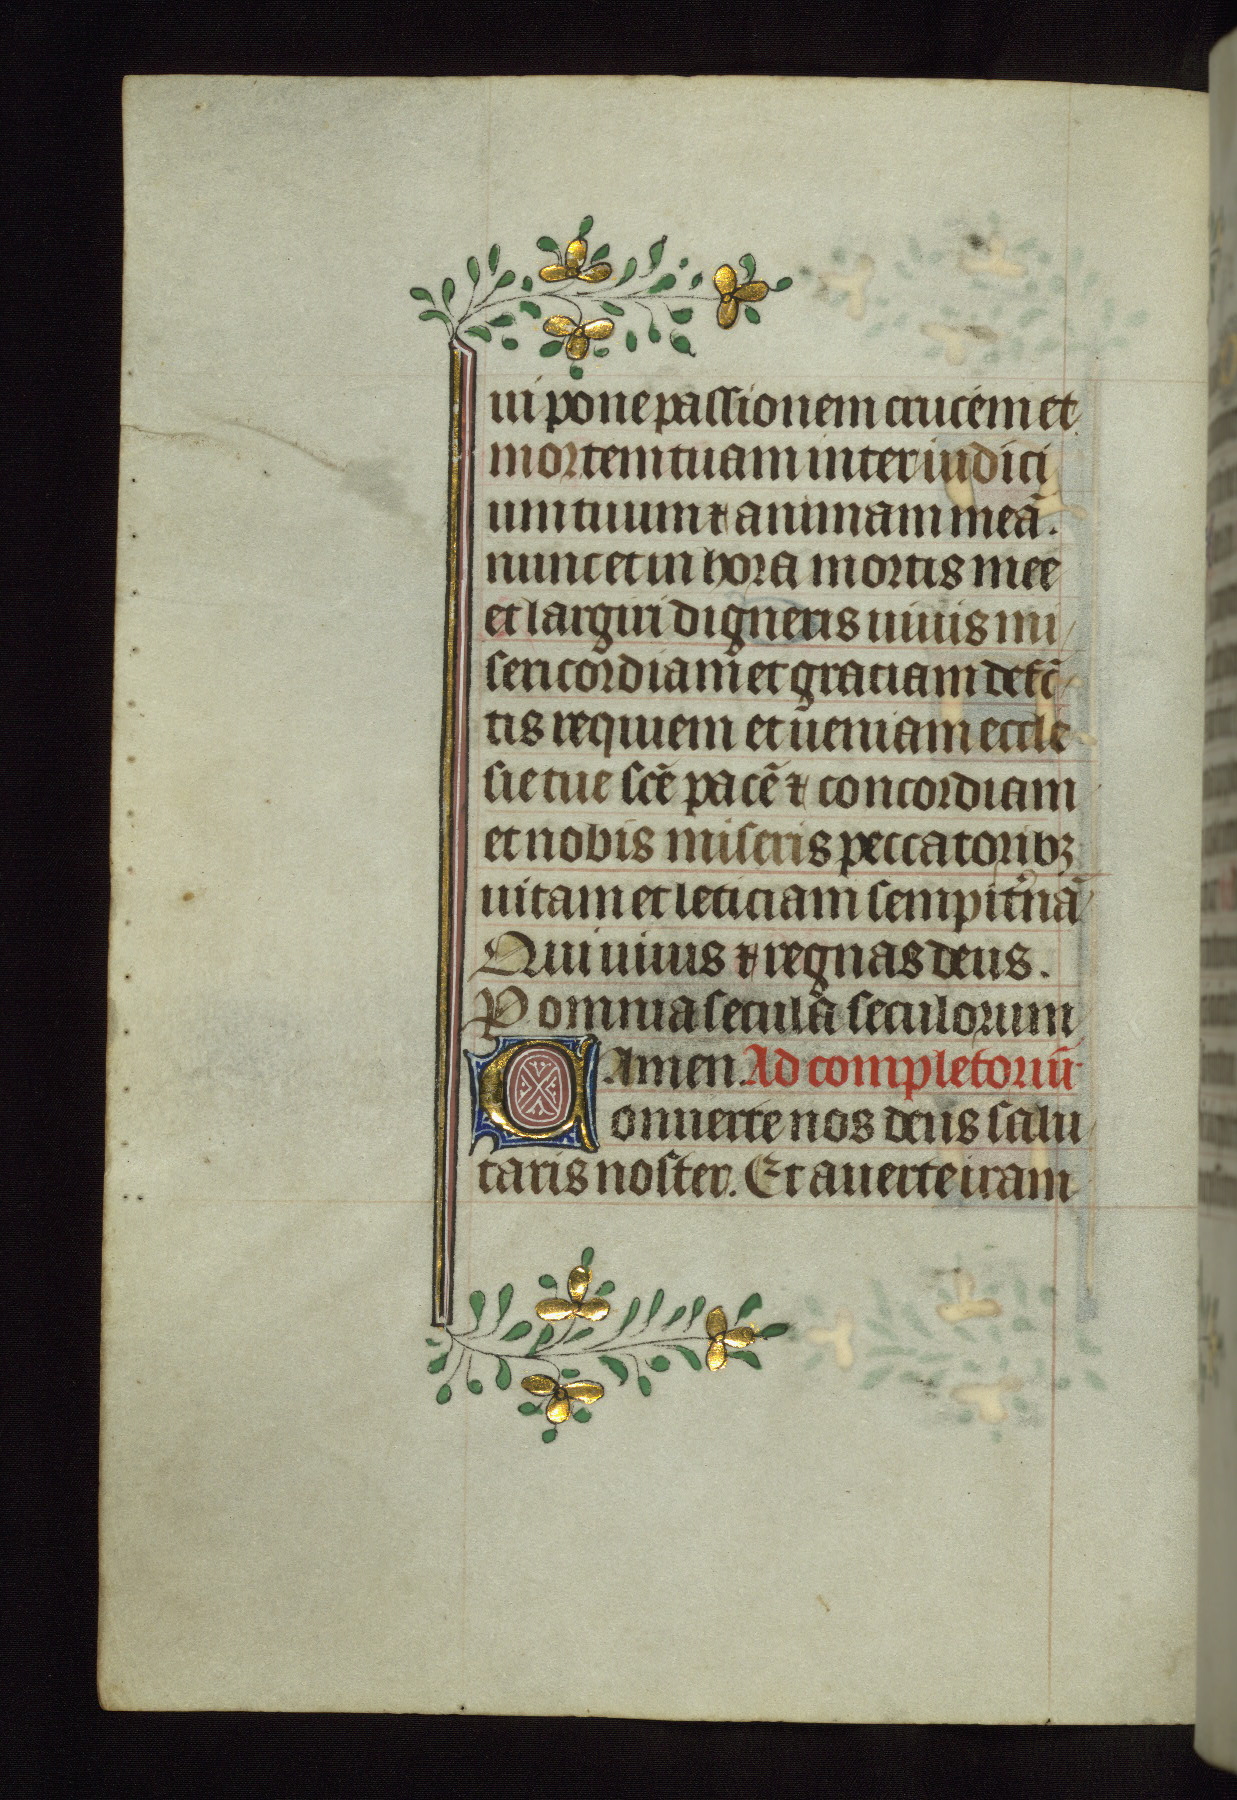 ui pone passionem crucem et
mortem tuam inter iudici
um tuum ⁊ animam meā.
nunc et in hora mortis mee
et largiri digneris uiuis mi
sericordiam et gratiam defc̄
tis requiem et ueniam eccle
sie tue scē pacē ⁊ concordiam
et nobis miseris peccatoribꝫ
uitam et leticiam sempit̉nā
Qui uiuis ⁊ regnas deus.
P omnia secula seculorum
Amen. Ad completoriū
Conuerte nos deus salu
taris noster. Et auerte iram